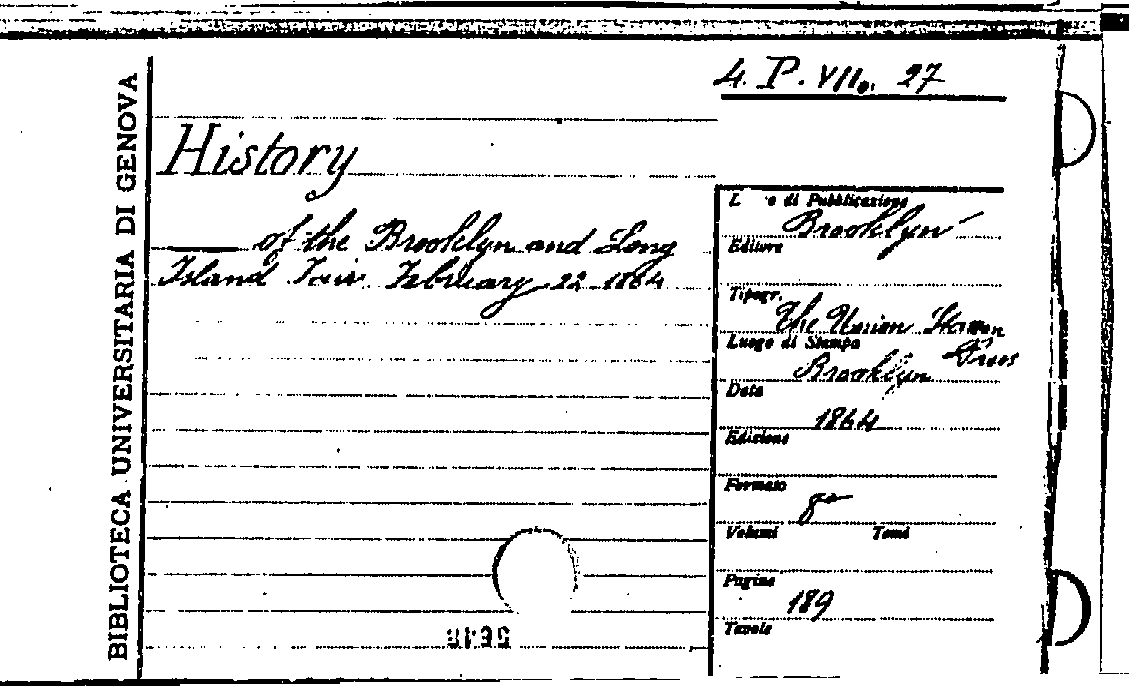 4. P. VII. 27
BIBLIOTECA UNIVERSITARIA DI GENOVA
History
of the Brooklyn and Long
Island Fair February 22 1864
L o di Pubblicazione
Brooklyn
Editore
Tipogr.
The Union Steam
Press
Luogo di Stampa
Brooklyn
Data
1864
Edizione
Formato
8°
Volumi Tomi
Pagine
189
Tavole